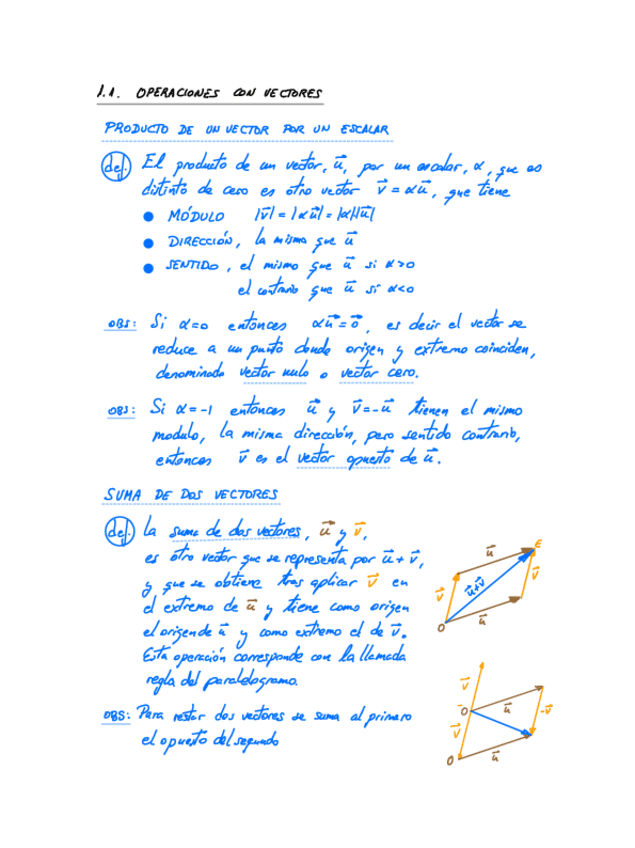 1.1. OPERACIONES CON VECTORES
PRODUCTO DE UN VECTOR POR UN ESCALAR
def. El producto de un vector, u⃗, por un escalar, α, que es
distinto de cero es otro vector v⃗ = αu⃗, que tiene
● MÓDULO |v⃗| = |αu⃗| = |α||u⃗|
● DIRECCIÓN, la misma que u⃗
● SENTIDO, el mismo que u⃗ si α>0
el contrario que u⃗ si α<0
OBS: Si α=0 entonces αu⃗=0⃗, es decir el vector se
reduce a un punto donde origen y extremo coinciden,
denominado vector nulo o vector cero.
OBS: Si α=-1 entonces u⃗ y v⃗=-u⃗ tienen el mismo
modulo, la misma dirección, pero sentido contrario,
entonces v⃗ es el vector opuesto de u⃗.
SUMA DE DOS VECTORES
def. La suma de dos vectores, u⃗ y v⃗,
es otro vector que se representa por u⃗+v⃗,
y que se obtiene tras aplicar v⃗ en
el extremo de u⃗ y tiene como origen
el origen de u⃗ y como extremo el de v⃗.
Esta operación corresponde con la llamada
regla del paralelogramo.
u⃗
E
v⃗
u⃗+v⃗
v⃗
O
u⃗
OBS: Para restar dos vectores se suma al primero
el opuesto del segundo
v⃗
O
u⃗
-v⃗
v⃗
O
u⃗